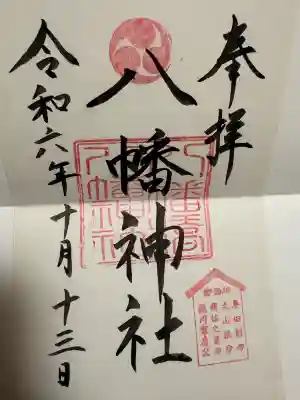 奉拝
八幡神社
令和六年十月十三日
八幡神社